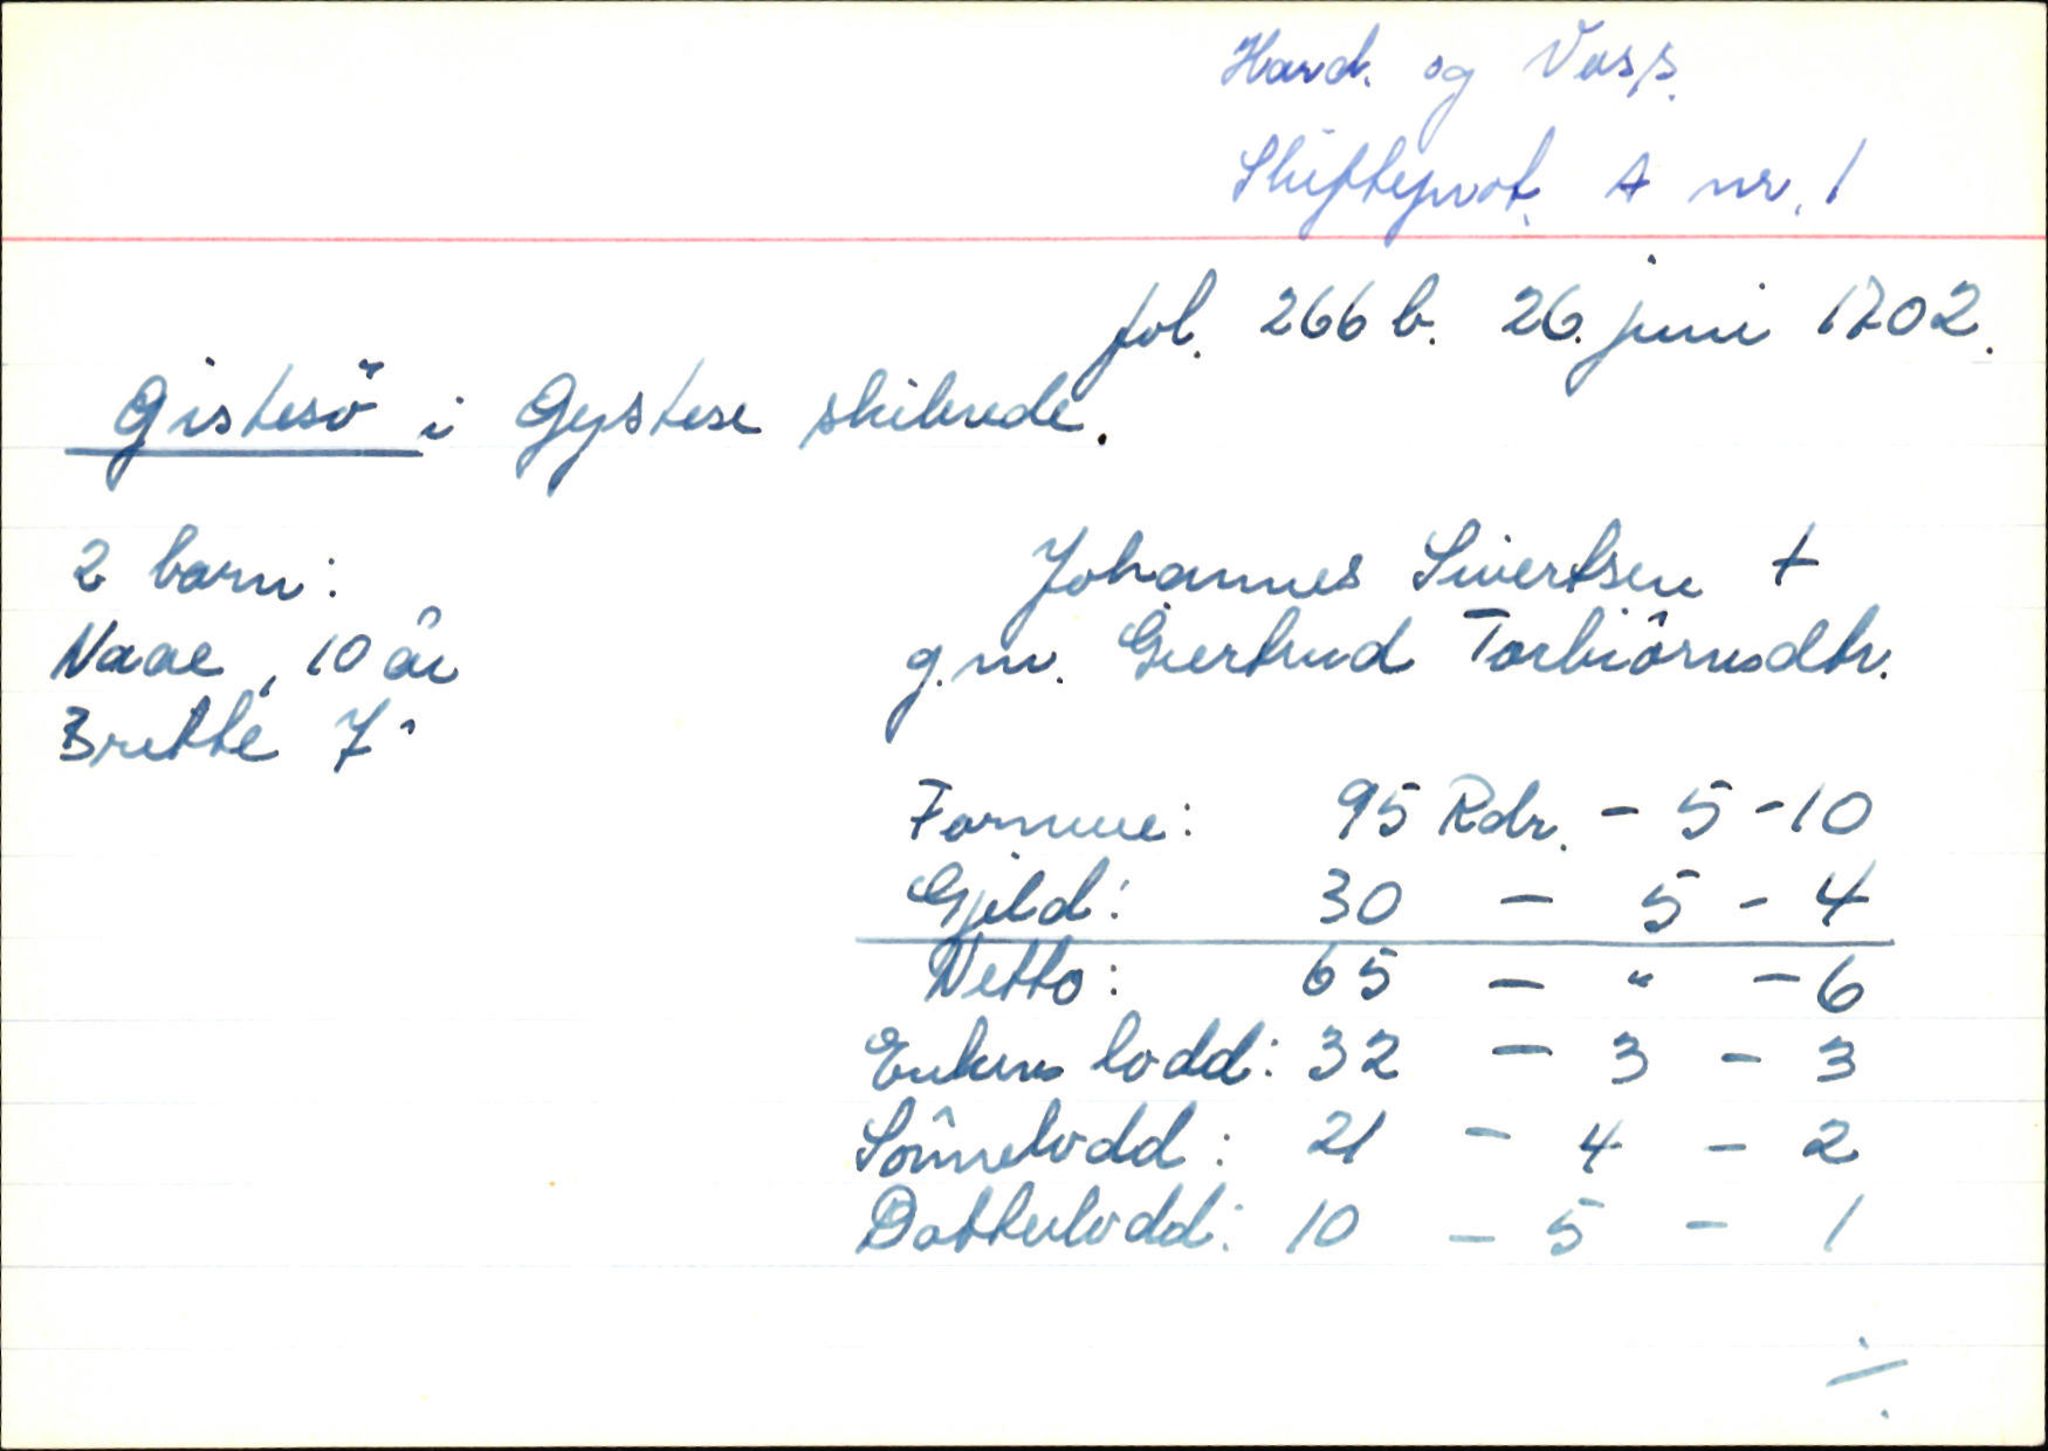 Hard. og Voss.
Skifteprot. A nr. 1
fol. 266 b. 26. juni 1702.
Gistesö i Gystese skibrede.
2 barn:
Naae, 10 år
Britte 7 "
Johannes Sivertsen +
g.m. Giertrud Torbiörnsdtr.
Formue: 95 Rdr. - 5 - 10
Gjeld: 30 - 5 - 4
Netto: 65 - " - 6
Enkens lodd: 32 - 3 - 3
Sönnelodd: 21 - 4 - 2
Datterlodd: 10 - 5 - 1
./.